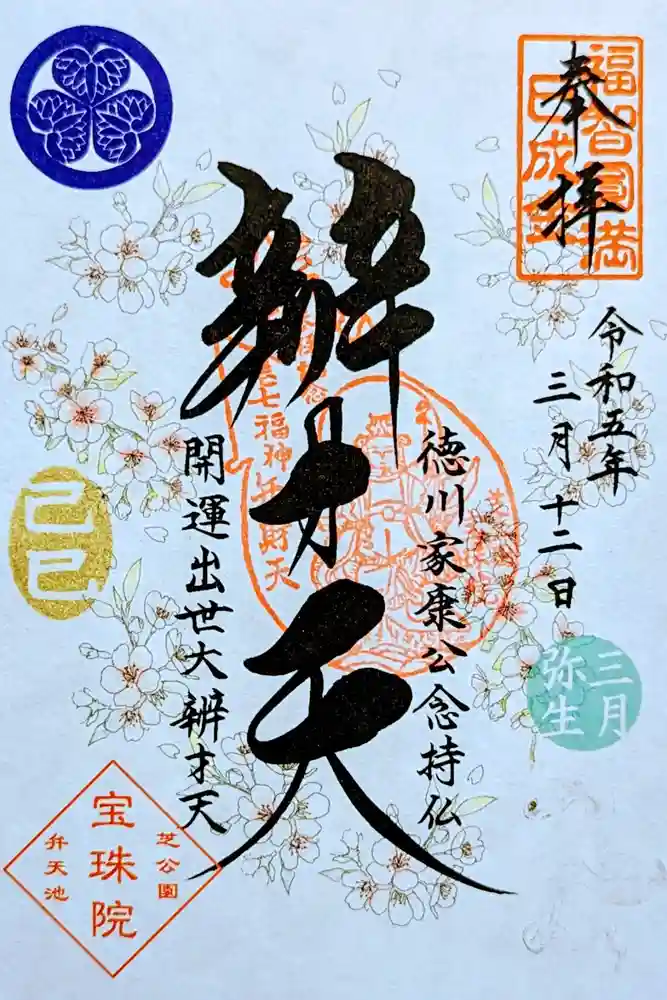 奉拝
福智圓満
令和五年
三月十二日
三月
弥生
徳川家康公念持仏
辨才天
七福神弁財天
開運出世大辨才天
己巳
芝公園
宝珠院
弁天池